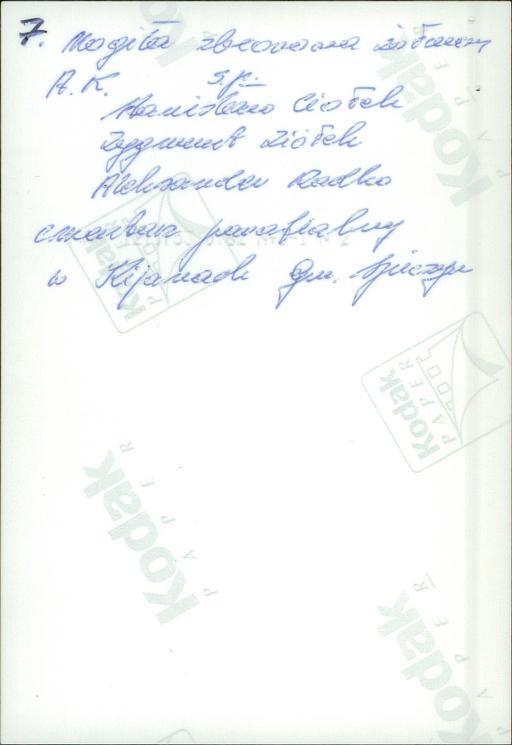 7. Mogiła zbiorowa żołnierzy
A.K. śp.
Stanisław Ciołek
Zygmunt Ziołek
Aleksander Radko
cmentarz parafialny
w Kijanach gm. Spiczyn
Kodak
PAPER
Kodak
PAPER
Kodak
PAPER
Kodak
PAPER
Kodak
PAPER